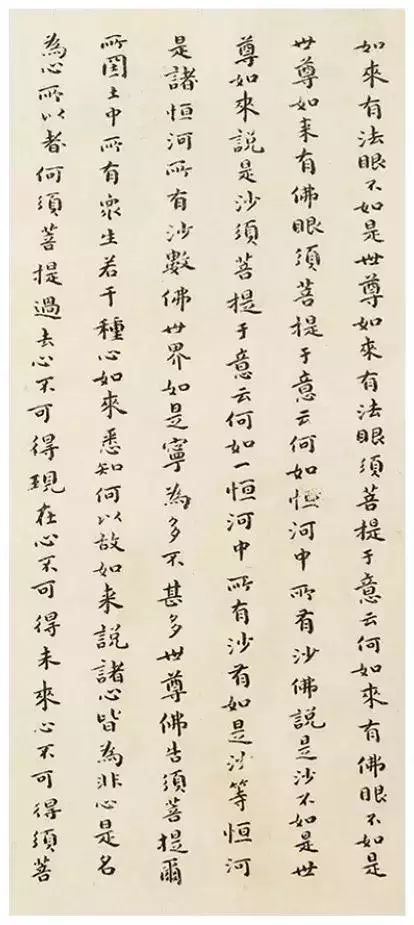 如來有法眼不如是世尊如來有法眼須菩提于意云何如來有佛眼不如是
世尊如来有佛眼須菩提于意云何如恒河中所有沙佛說是沙不如是世
尊如來說是沙須菩提于意云何如一恒河中所有沙有如是沙等恒河
是諸恒河所有沙數佛世界如是寧為多不甚多世尊佛告須菩提爾
所國土中所有衆生若干種心如來悉知何以故如来說諸心皆為非心是名
為心所以者何須菩提過去心不可得現在心不可得未來心不可得須菩